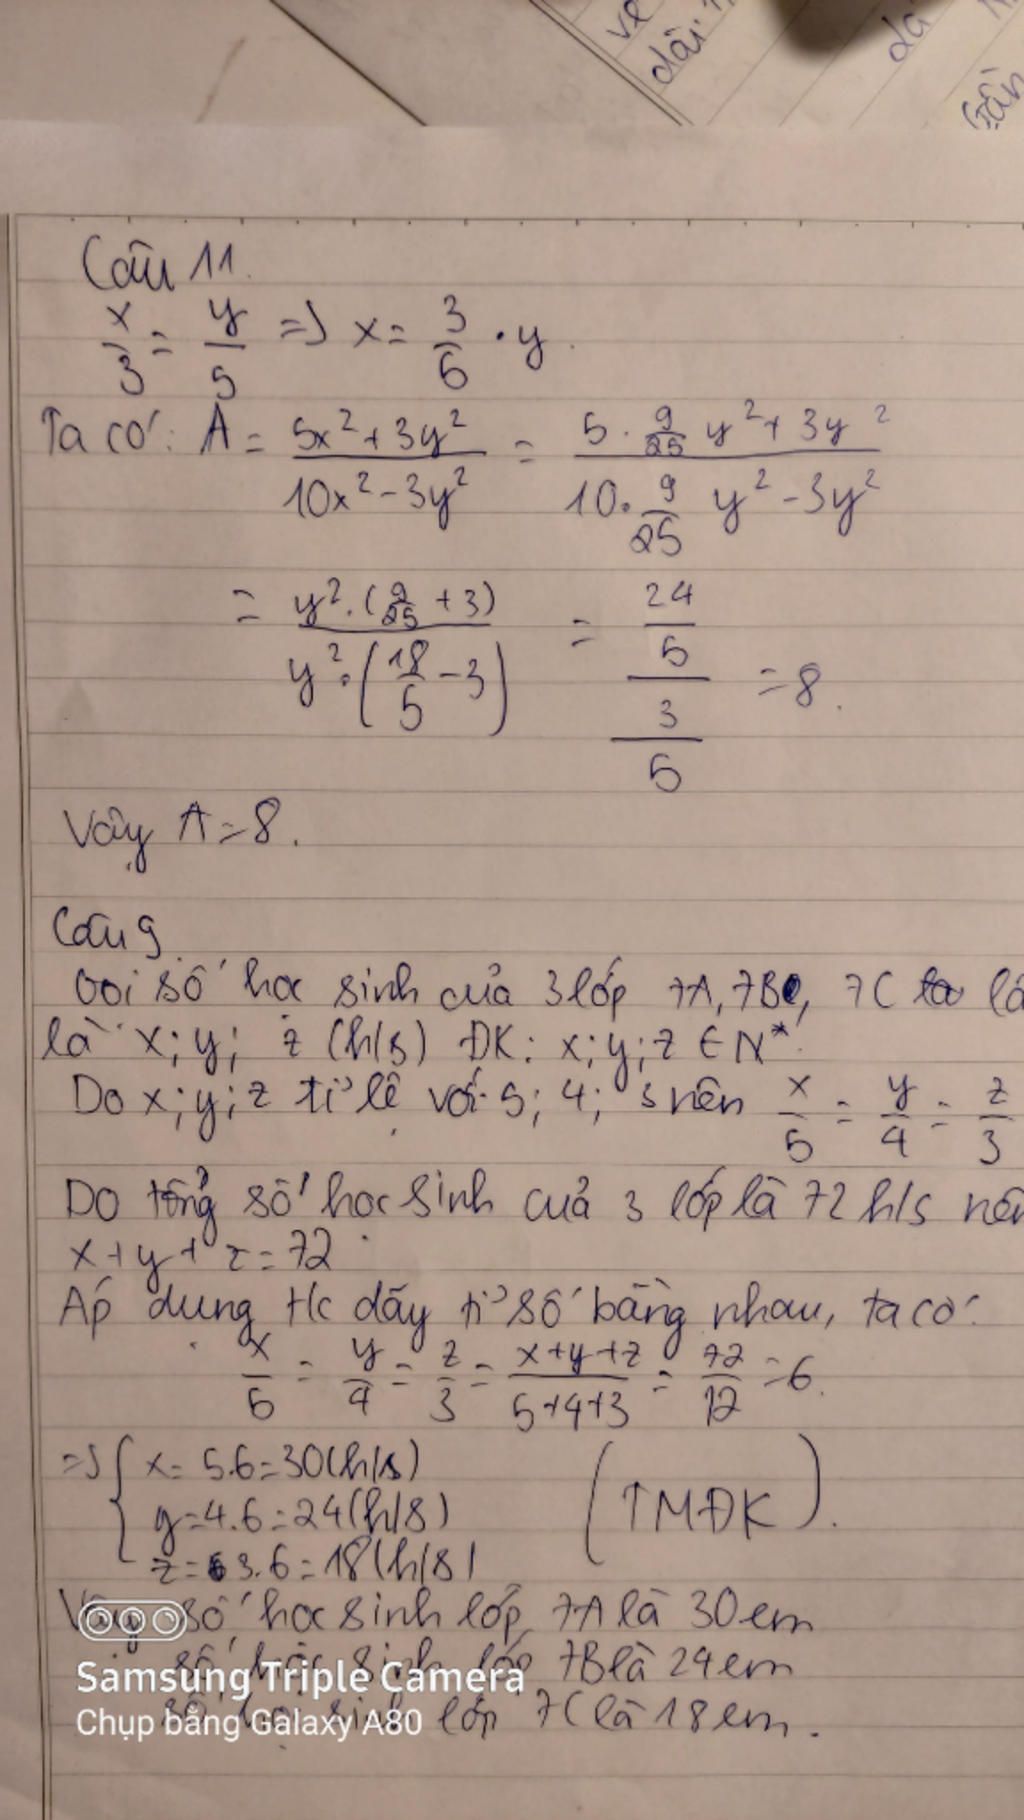 vẽ
dài
dà
Câu 11.
x/3 = y/5 => x = 3/5 . y.
Ta có: A = 5x²+3y² / 10x²-3y² = 5 . 9/25 y² + 3y² / 10 . 9/25 y² - 3y²
= y².(9/25 + 3) / y².(18/5 - 3) = 24/5 / 3/5 = 8.
Vậy A = 8.
Câu 9
Gọi số học sinh của 3 lớp 7A, 7B, 7C
là x; y; z (h/s) ĐK: x; y; z ∈ N*
Do x; y; z tỉ lệ với 5; 4; 3 nên x/5 = y/4 = z/3
Do tổng số học sinh cuả 3 lớp là 72 h/s nên
x + y + z = 72
Áp dụng t/c dãy tỉ số bằng nhau, ta có:
x/5 = y/4 = z/3 = x+y+z / 5+4+3 = 72/12 = 6.
=> { x = 5.6 = 30 (h/s)
y = 4.6 = 24 (h/s) (TMĐK).
z = 3.6 = 18 (h/s)
Vậy số học sinh lớp 7A là 30 em
số học sinh lớp 7B là 24 em
số học sinh lớp 7C là 18 em.
Samsung Triple Camera
Chụp bằng Galaxy A80